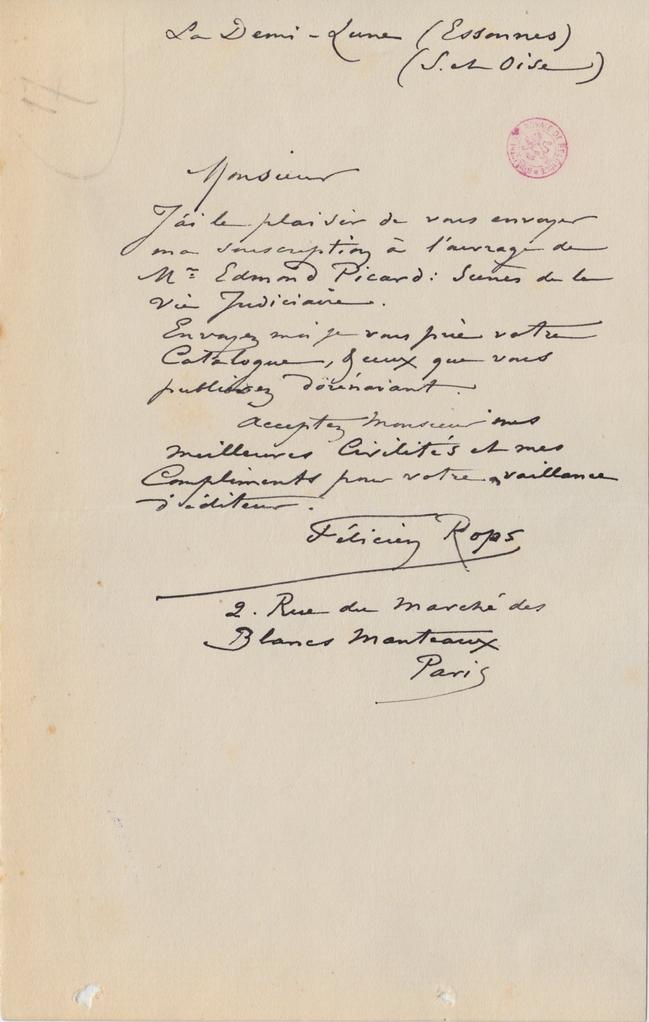 La Demi-Lune (Essonnes)
(S. et Oise)
17
Monsieur
J'ai le plaisir de vous envoyer
ma souscription à l'ouvrage de
Mr Edmond Picard: Scènes de la
vie Judiciaire.
Envoyez moi je vous prie votre
Catalogue, & ceux que vous
publierez dorénavant.
Acceptez Monsieur mes
meilleures Civilités et mes
Compliments pour votre vaillance
d'éditeur.
Félicien Rops
2. Rue du Marché des
Blancs Manteaux
Paris